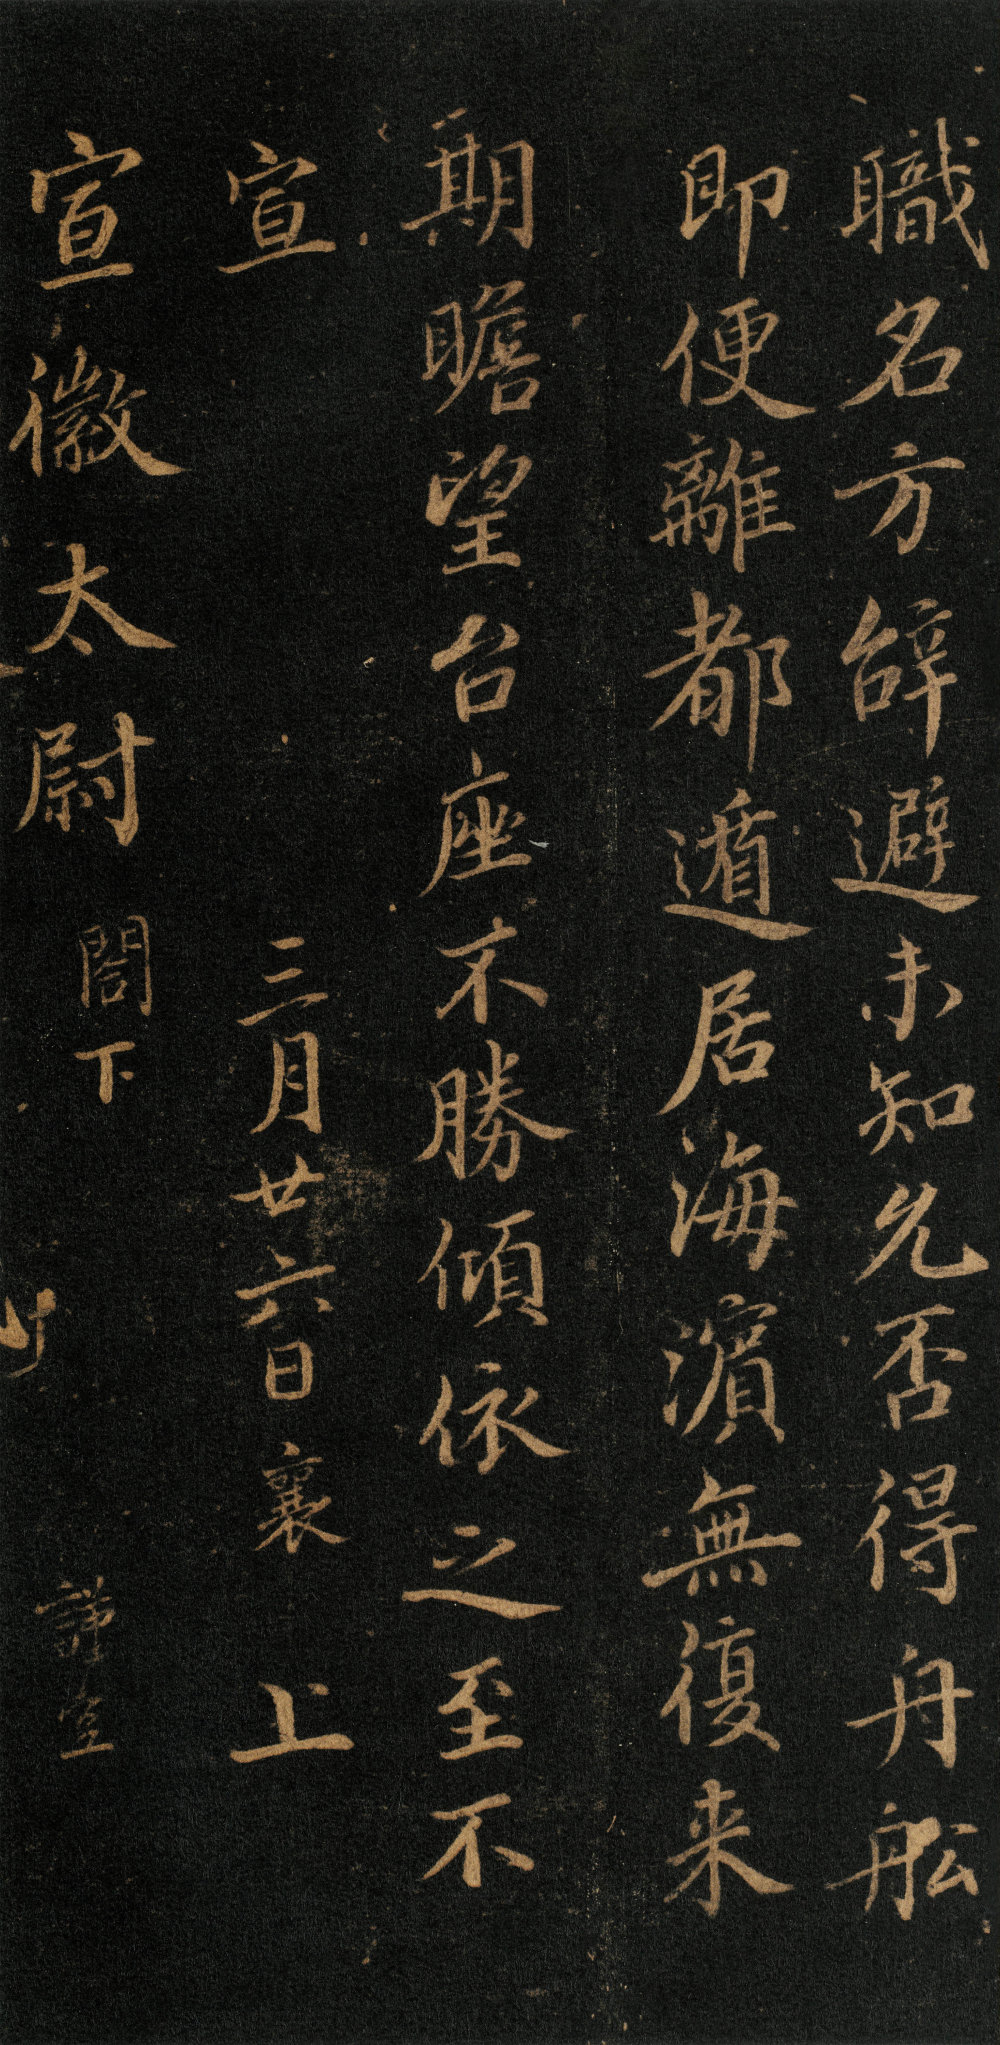 職名方辤避未知允否得舟舩
即便離都遁居海濵無復来
期瞻望台座不勝傾依之至不
宣
三月廿六日襄上
宣徽太尉閤下
謹空